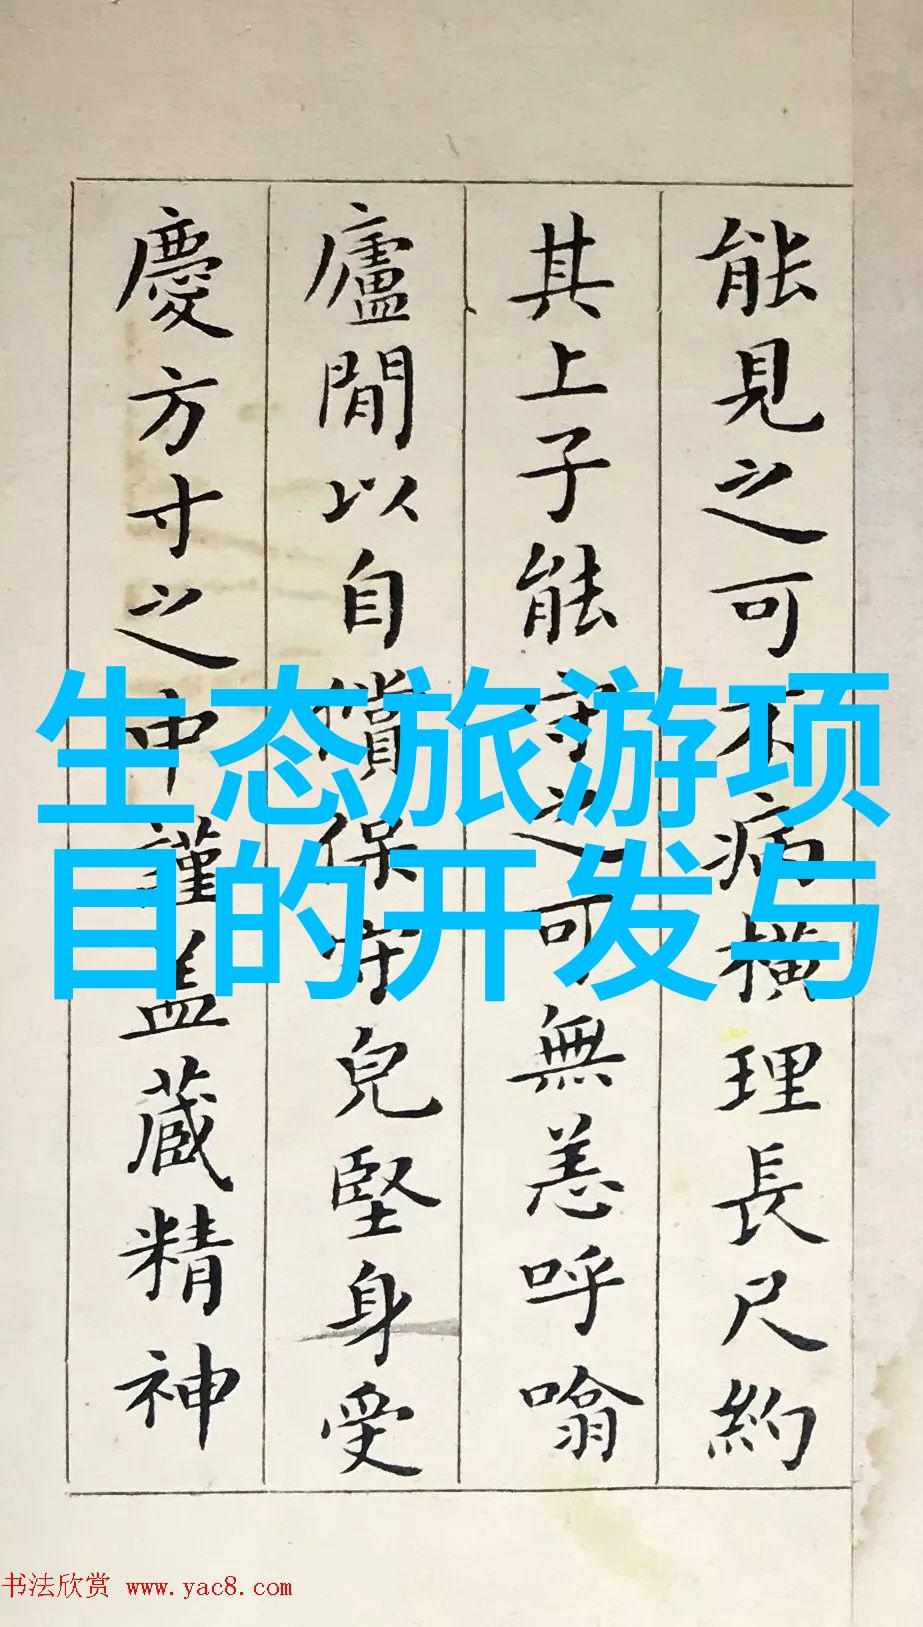 能見之可不病橫理長尺約
其上子能守之可無恙呼噏
廬間以自償保守皃堅身受
慶方寸之中謹盖蔵精神
生态旅游项
目的开发与
书法欣赏 www.yac8.com